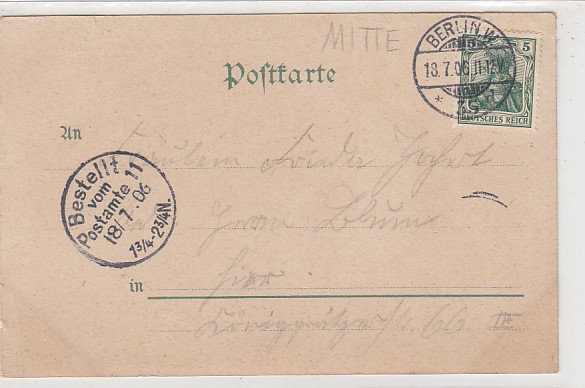 MITTE
BERLIN W.
18.7.06.11-12V.
5
DEUTSCHES REICH
Postkarte
An
Fräulein Frieda
Bestellt
vom
Postamte 11
18/7.06
1 3/4-2 3/4N.
Frau Blum
in hier
Königgrätzerstr. 66 III